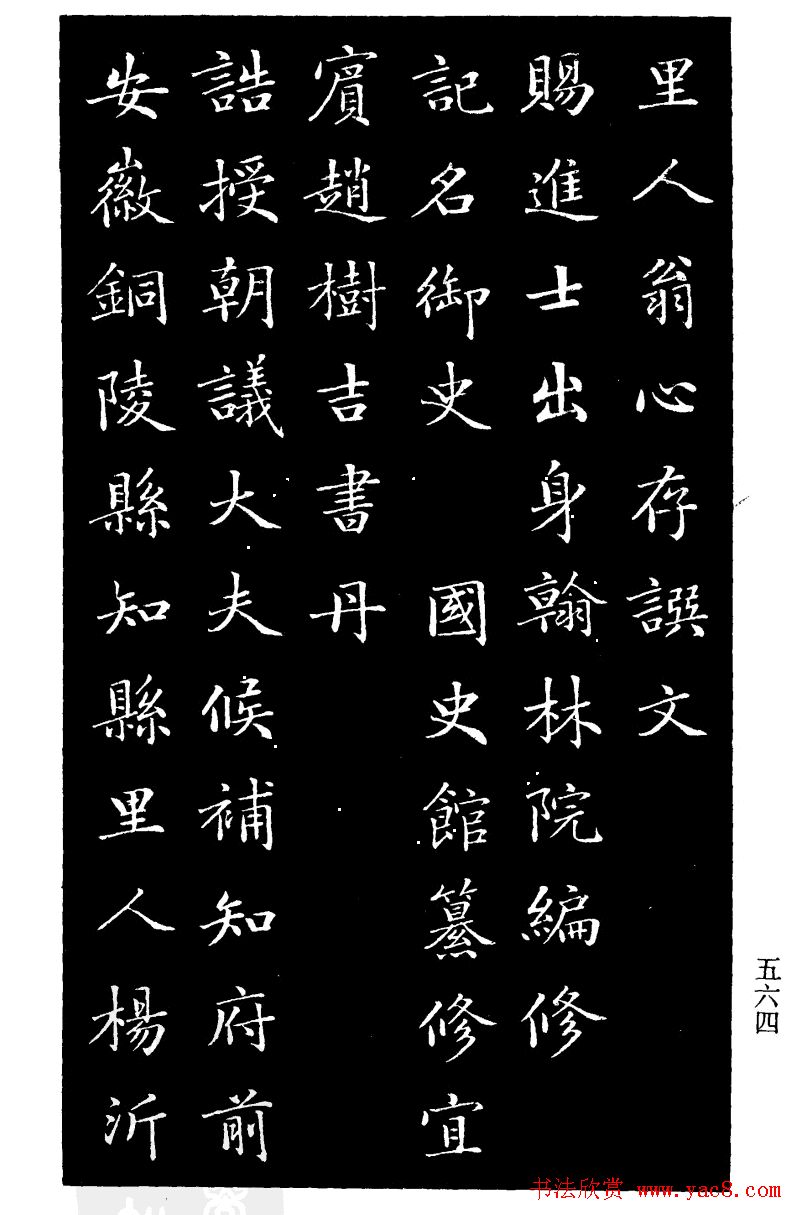 里人翁心存譔文
賜進士出身翰林院編修
記名御史　國史館纂修宜
賓趙樹吉書丹
誥授朝議大夫候補知府前
安徽銅陵縣知縣里人楊沂
五六四
书法欣赏 www.yac8.com